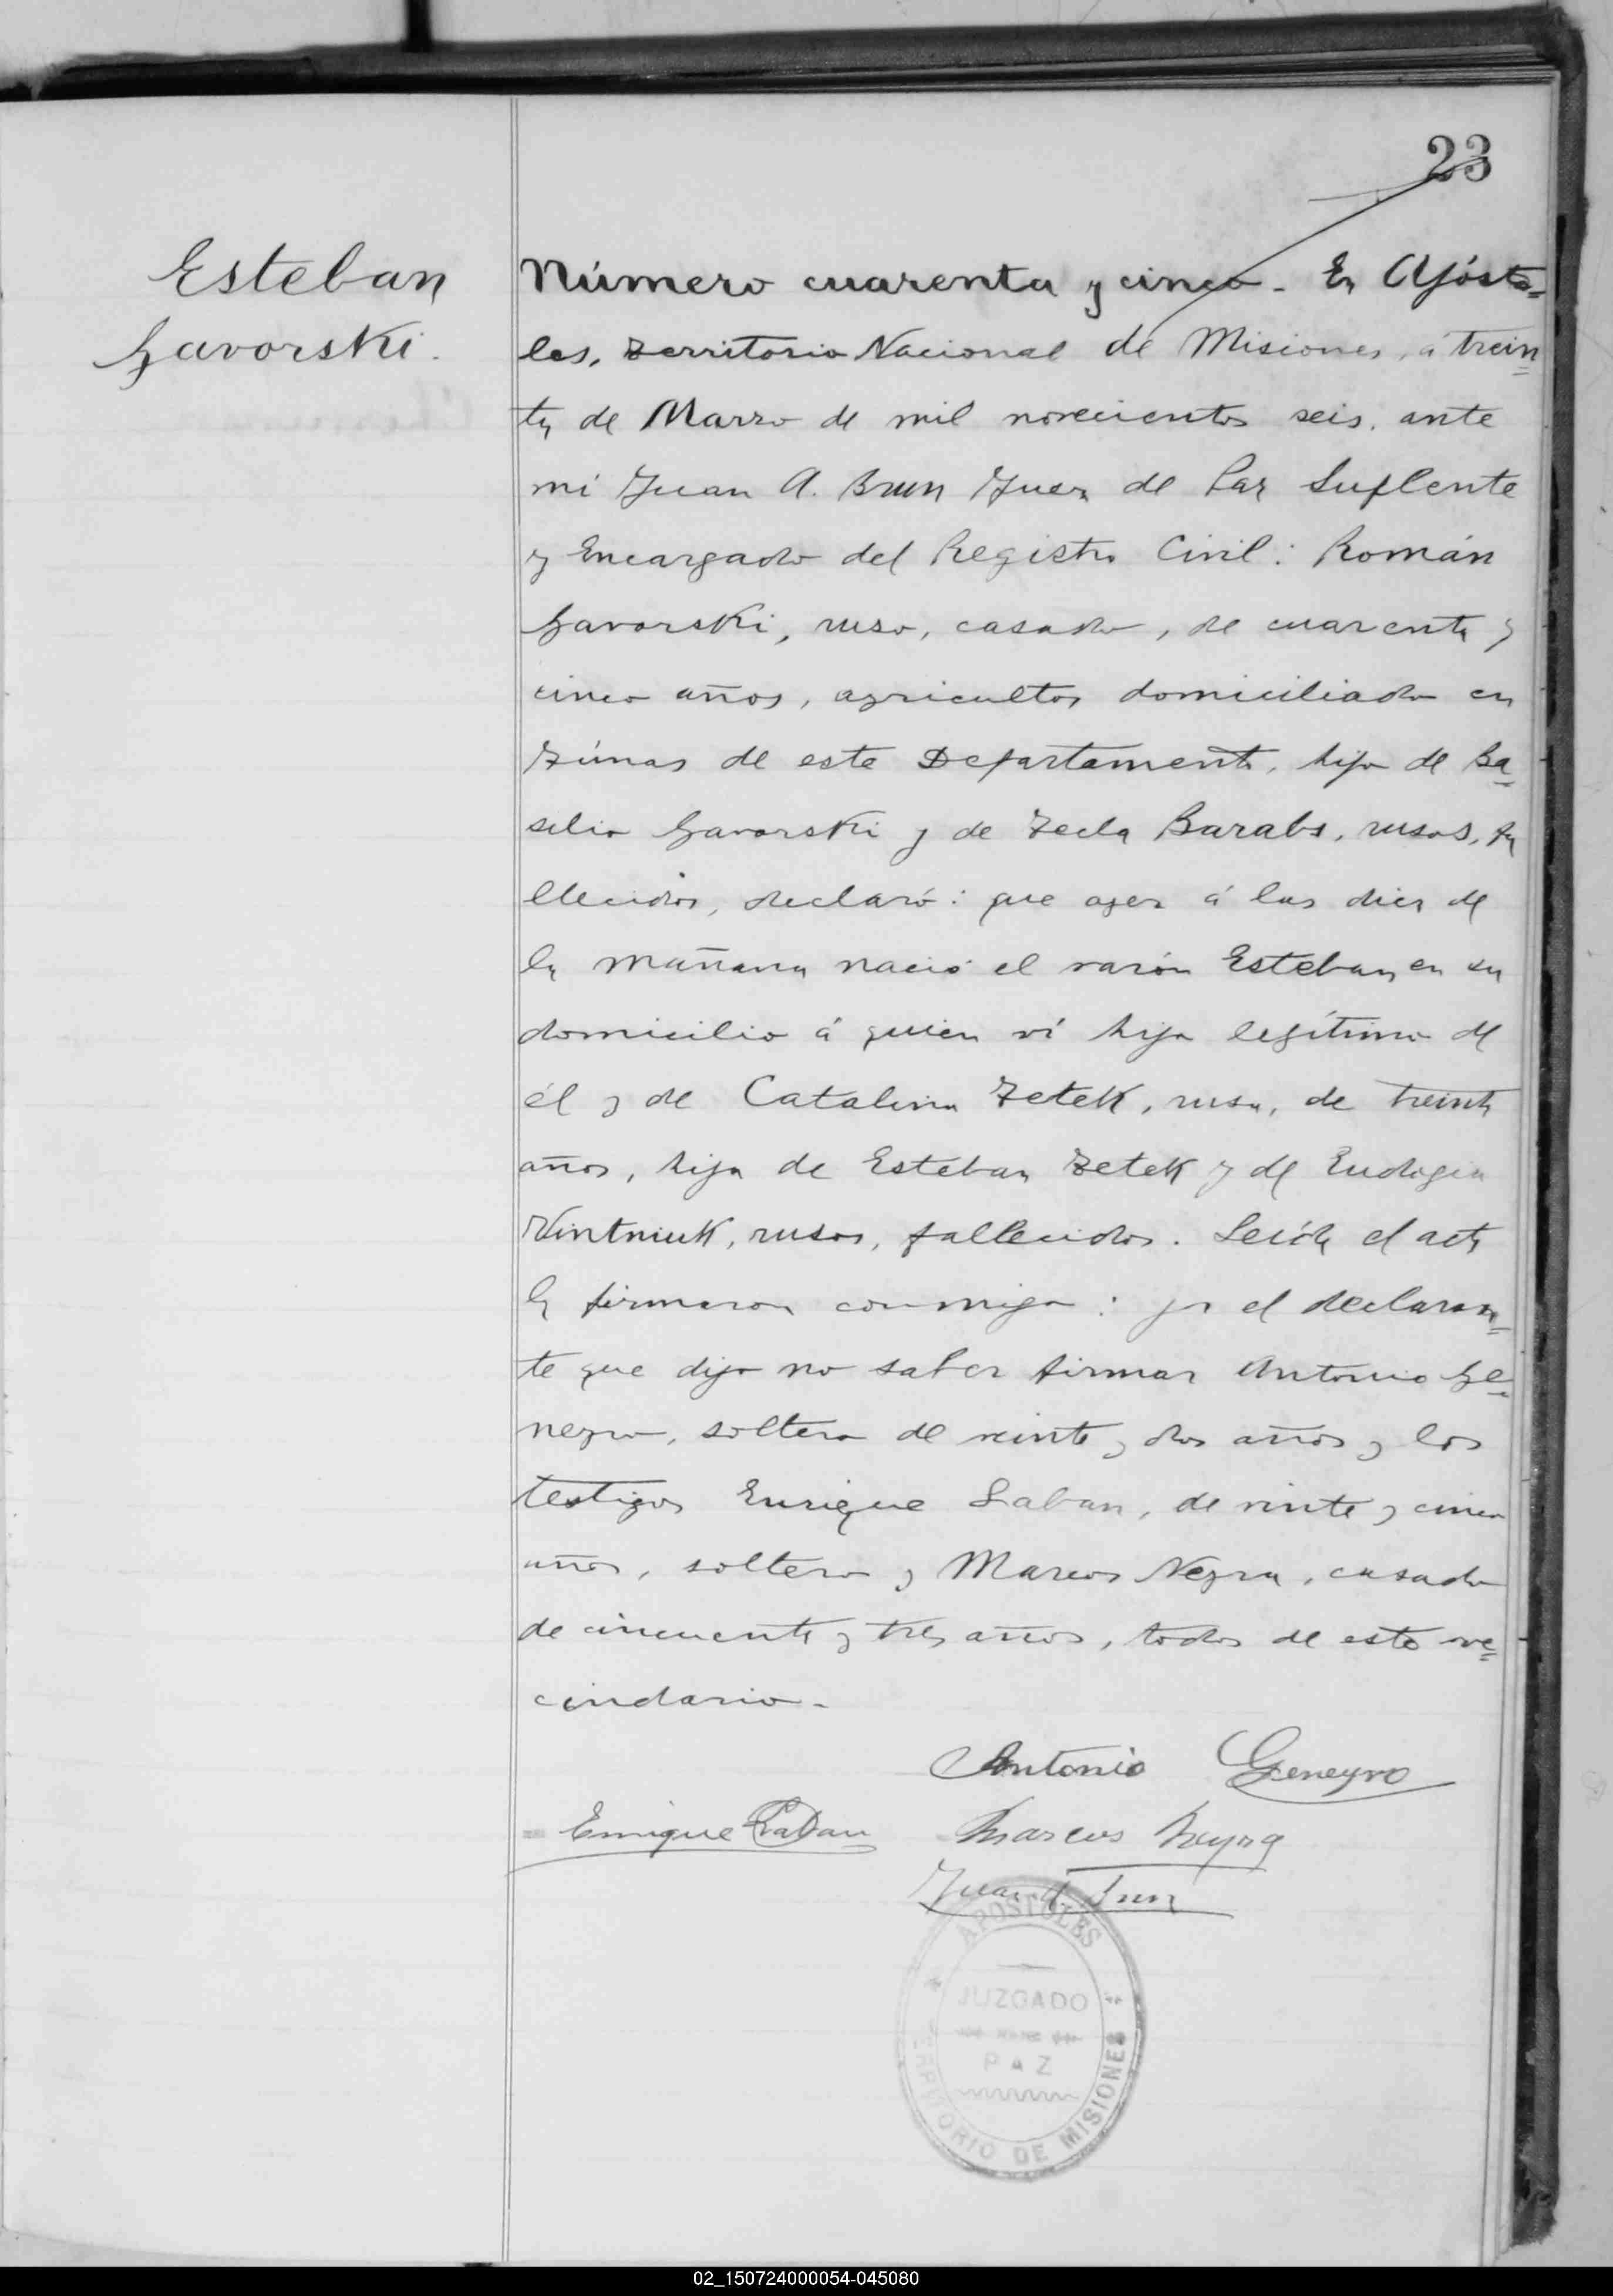 23
Esteban
Gavorski.
Número cuarenta y cinco. En Apósto=
les, Territorio Nacional de Misiones, á trein
ta de Marzo de mil novecientos seis, ante
mi Juan A. Brun Juez de Paz Suplente
y Encargado del Registro Civil: Román
Gavorski, ruso, casado, de cuarenta y
cinco años, agricultor domiciliado en
Túnas de este Departamento, hijo de Ba
silio Gavorski y de Tecla Barabs, rusos, fa
llecidos, declaró: que ayer á las diez de
la mañana nació el varón Esteban en su
domicilio á quien ví hijo legítimo de
él y de Catalina Tetek, rusa, de treinta
años, hija de Esteban Tetek y de Eudogia
Vintniuk, rusos, fallecidos. Leída el acta
la firmaron conmigo: por el declaran=
te que dijo no saber firmar Antonio Ge=
neyro, soltero de veinte y dos años y los
testigos Enrique Laban, de vinte y cinco
años, soltero y Marcos Neyra, casado
de cincuenta y tres años, todos de este ve=
cindario.
Antonio Geneyro
Enrique Laban Marcos Neyra
Juan A. Brun
APOSTOLES
JUZGADO
PAZ
TERRITORIO DE MISIONES
02_150724000054-045080